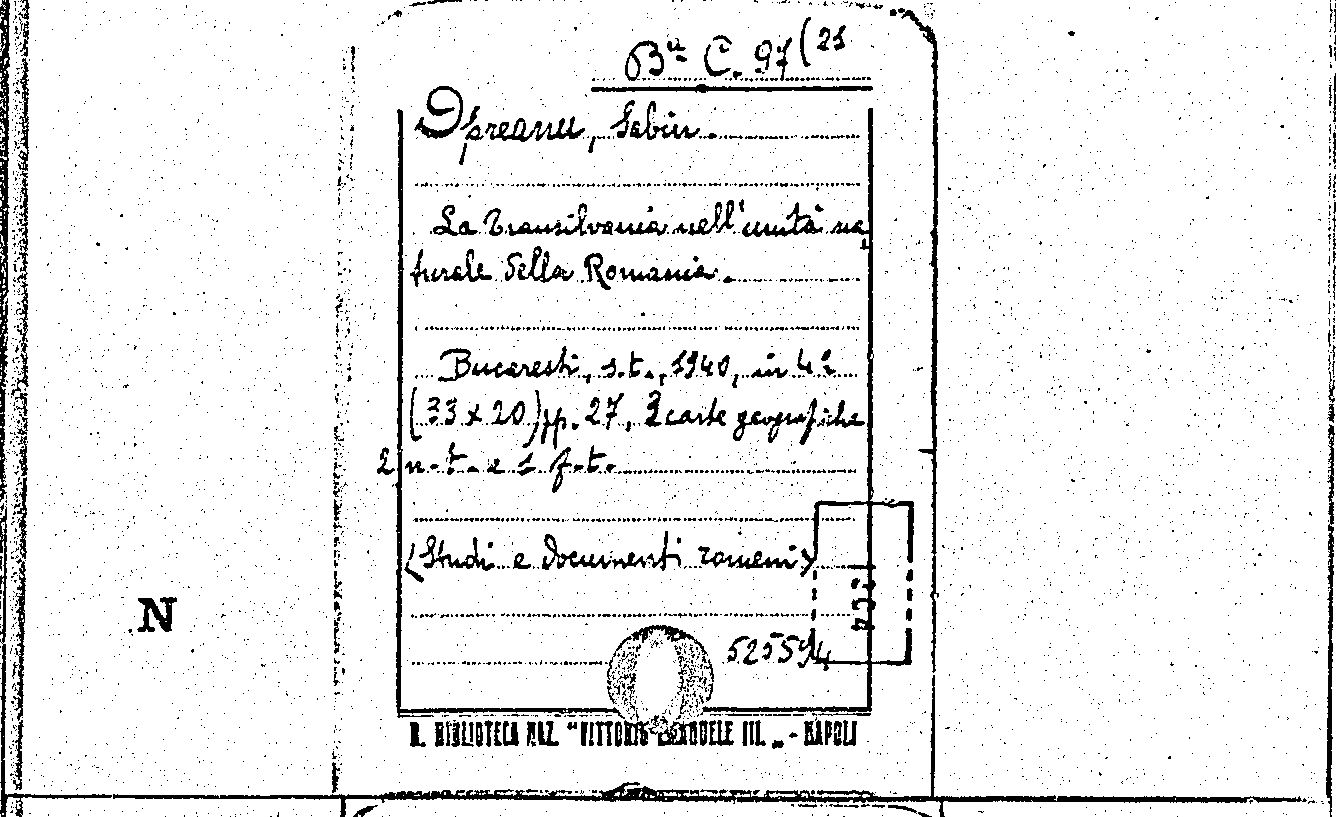 Bª C. 97 (21
Opreanu, Sabin.
La Transilvania nell'unità na,
turale della Romania.
Bucaresti, s.t., 1940, in 4°
(33 x 20) pp. 27, 3 carte geografiche
2 n.t. e 1 f.t.
(Studi e documenti romeni)
N
525594
R. BIBLIOTECA NAZ. "VITTORIO EMANUELE III." - NAPOLI